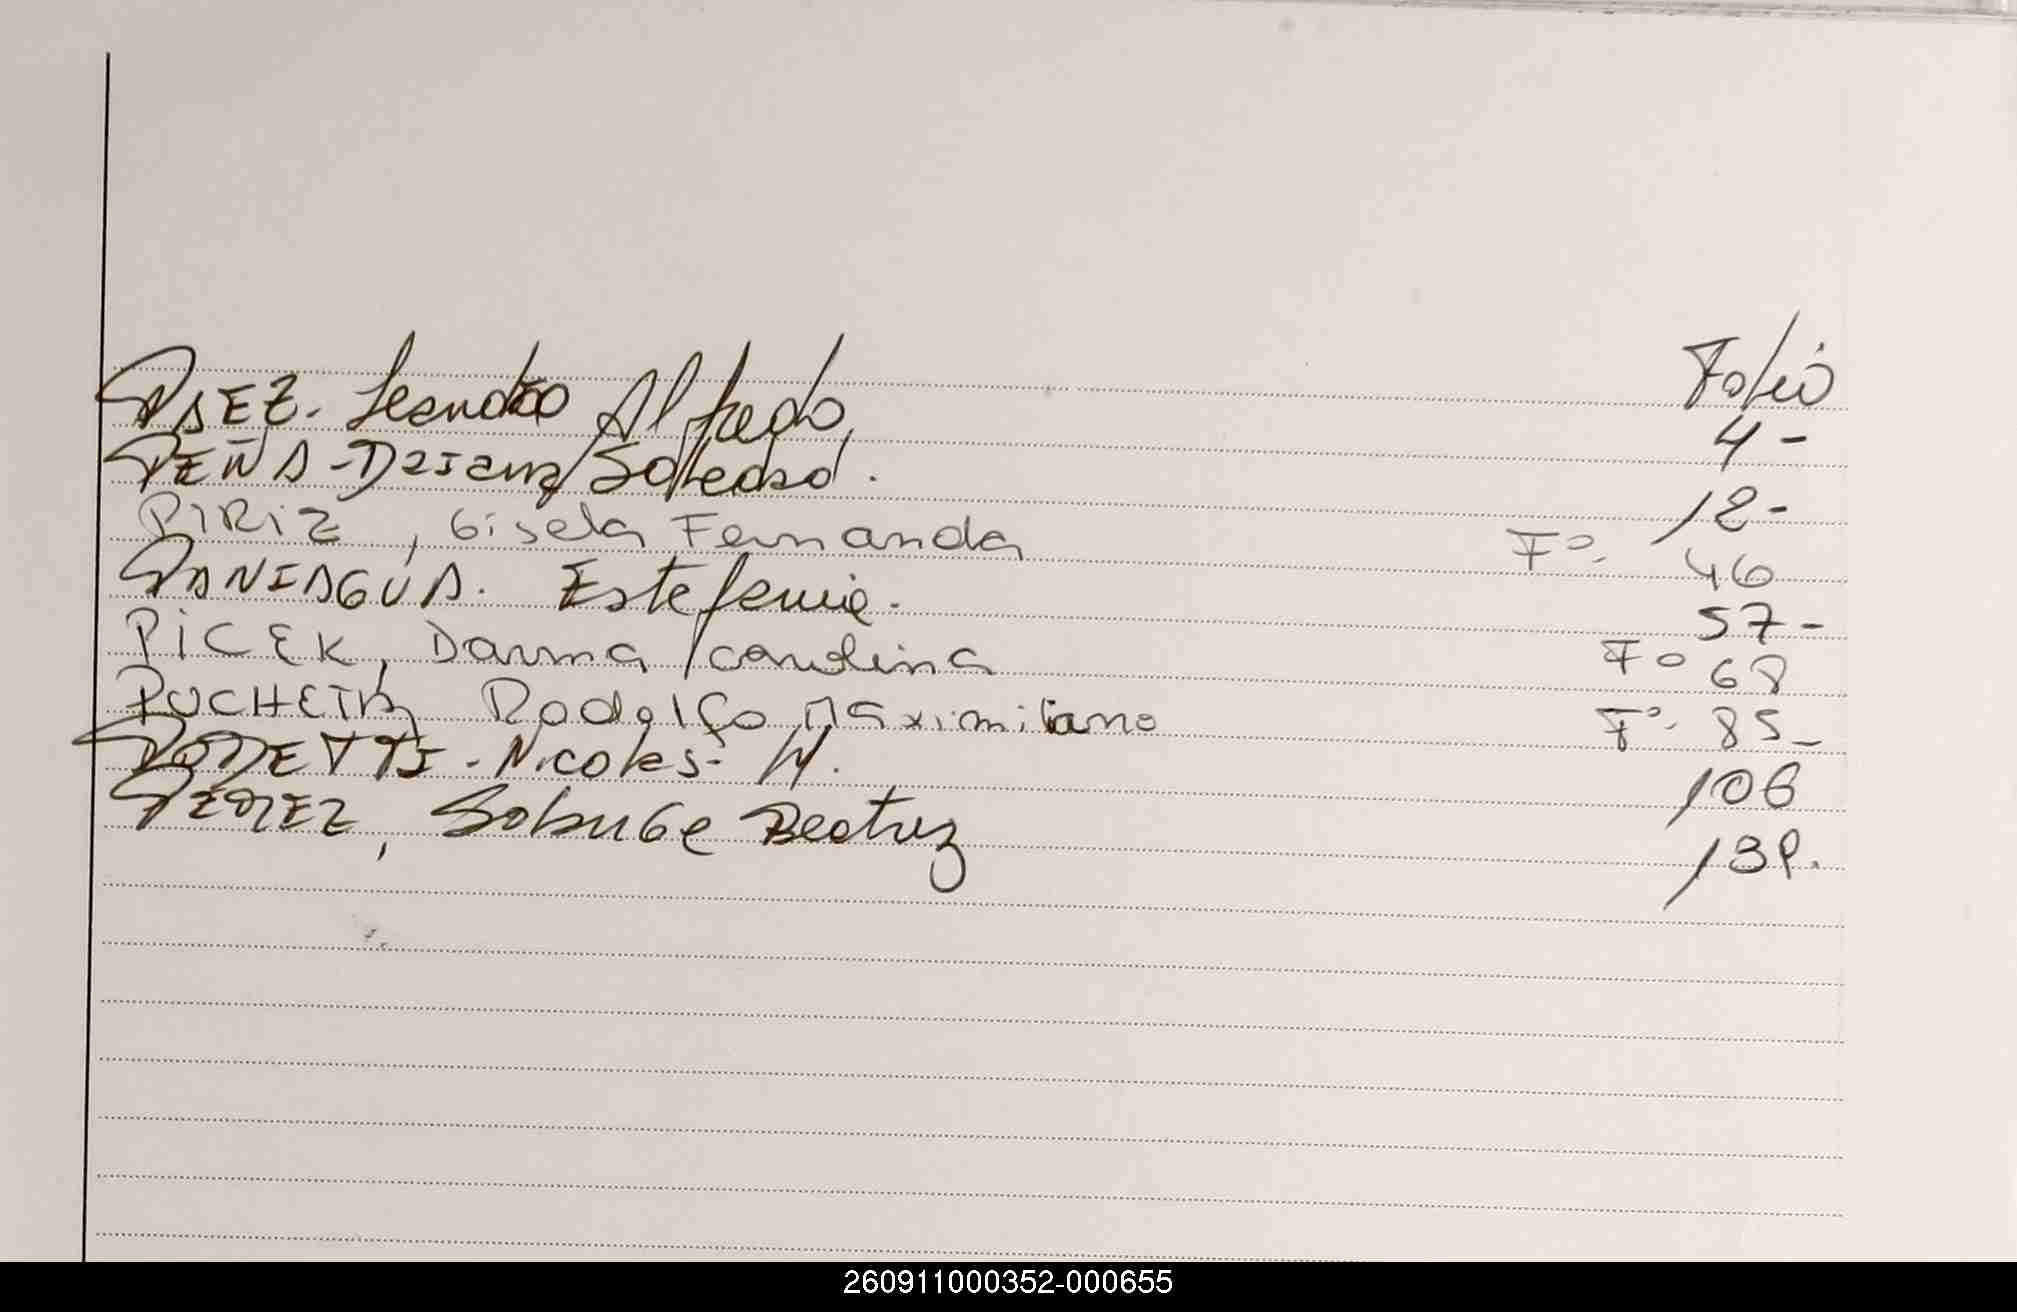 Folio
PAEZ. Leandro Alfredo, 4-
PEÑA - Daiana Soledad. 12-
PIRIZ, Gisela Fernanda Fº. 46
PANIAGUA. Estefania. 57-
PICEK, Darma Carolina Fº 68
PUCHETA Rodolfo Maximiliano Fº. 85_
Nicolas. 106
PEREZ, Solange Beatriz 139.
260911000352-000655